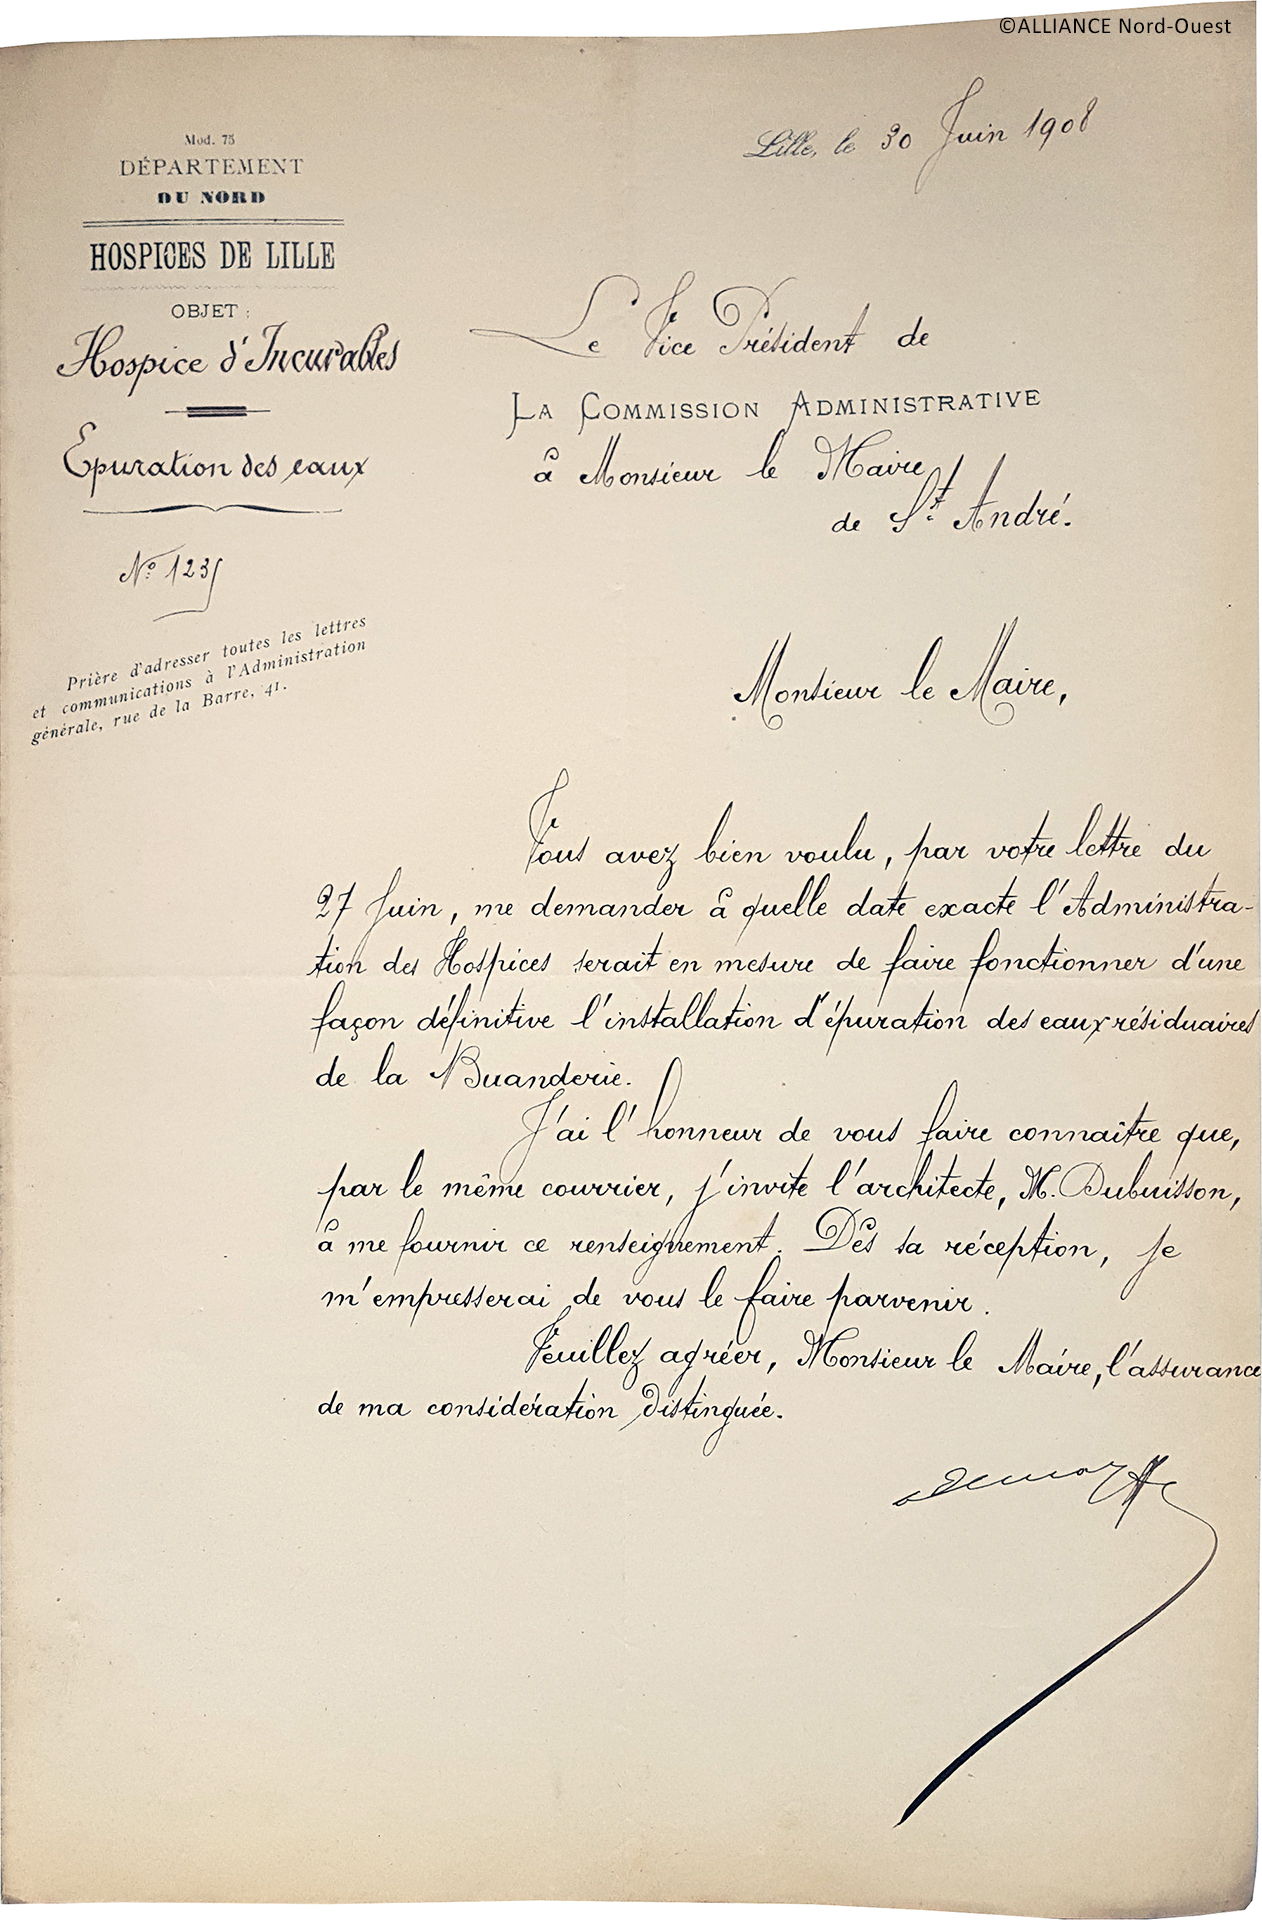 ©ALLIANCE Nord-Ouest
Lille, le 30 Juin 1908
Mod. 75
DÉPARTEMENT
DU NORD
HOSPICES DE LILLE
OBJET :
Hospice d'Incurables
Epuration des eaux
N° 1235
Prière d'adresser toutes les lettres
et communications à l'Administration
générale, rue de la Barre, 41.
Le Vice Président de
LA COMMISSION ADMINISTRATIVE
à Monsieur le Maire
de St. André.
Monsieur le Maire,
Vous avez bien voulu, par votre lettre du
27 Juin, me demander à quelle date exacte l'Administra-
tion des Hospices serait en mesure de faire fonctionner d'une
façon définitive l'installation d'épuration des eaux résiduaires
de la Buanderie.
J'ai l'honneur de vous faire connaître que,
par le même courrier, j'invite l'architecte, M. Dubuisson,
à me fournir ce renseignement. Dès sa réception, je
m'empresserai de vous le faire parvenir.
Veuillez agréer, Monsieur le Maire, l'assurance
de ma considération distinguée.